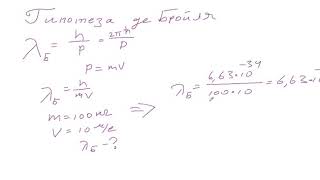 Гипотеза де Бройля
λ_Б = h/p = 2πħ/p
p = mV
λ_Б = h/mV
m = 100 кг
V = 10 м/с
λ_Б - ?
=> λ_Б = 6,63·10^-34/100·10 = 6,63·10